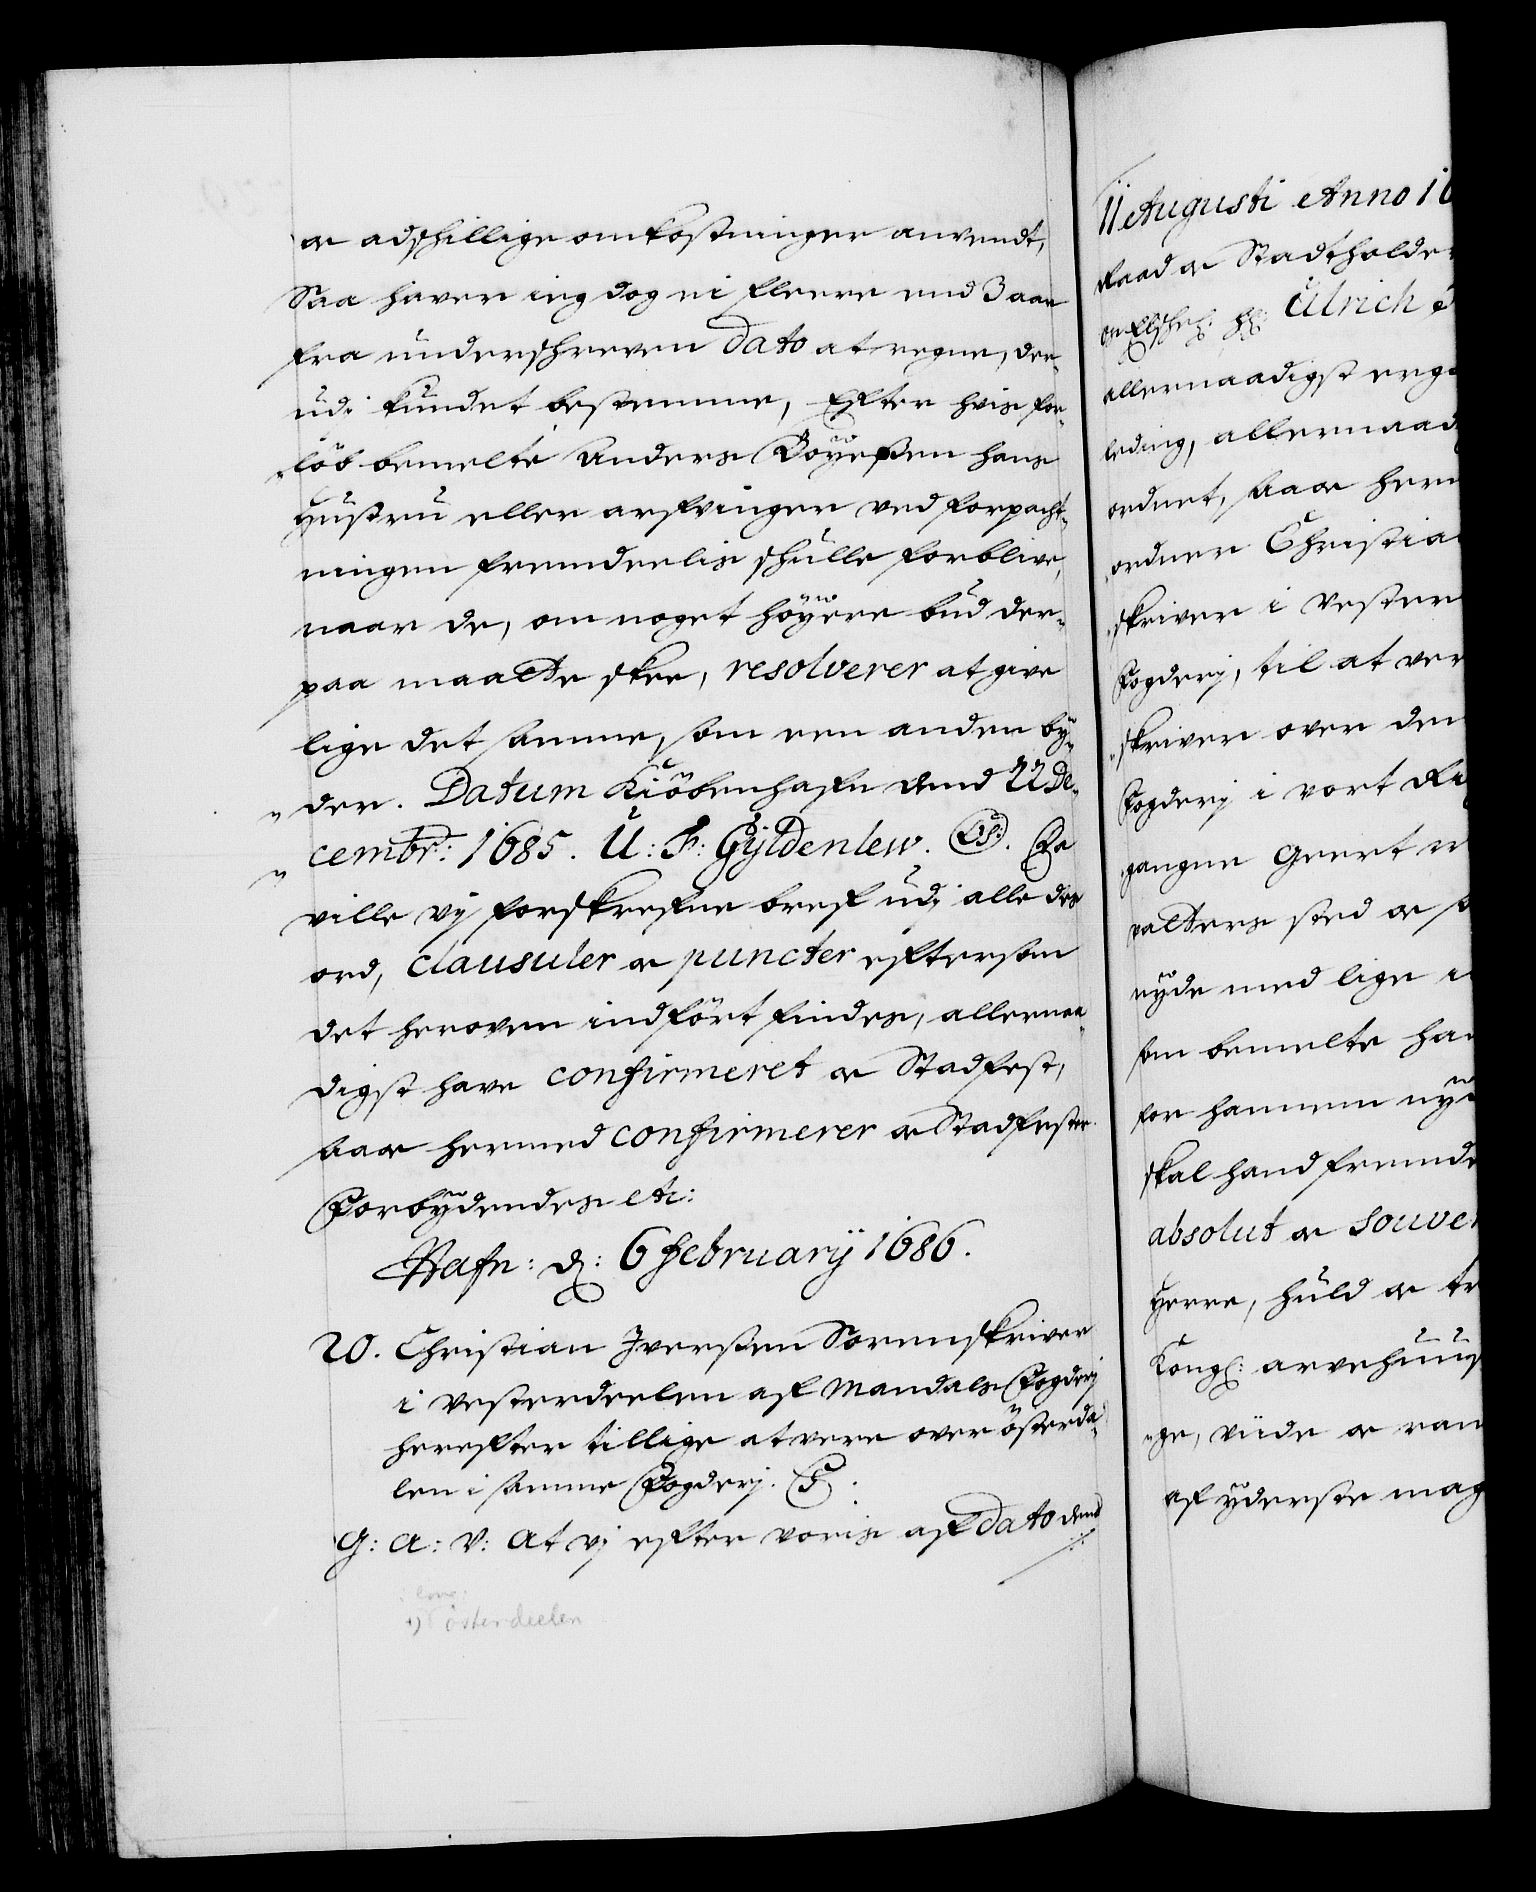 oc adschillige omkostninger anvendt,
Saa haver ieg dog ei fleere end 3 aar
fra underschreven Dato at regne, der„
udi kundet bestemme, Efter hvis for„
„löb bemelte Anders Boyeßen hans
Hustru eller arfvinger ved forpacht„
ningen fremdeelis schulle forblive,
naar de, om noget höyere bud der„
paa maatte skee, resolverer at give
lige det samme, som een anden by„
„der. Datum Kiöbenhafn dend 22 De„
„cembr: 1685. U: F: Gyldenlew. LS. Da
ville vij forskrefne bref udj alle des
ord, clausuler oc puncter eftersom
det heroven indfört findes, allernaa„
digst have confirmeret oc Stadfest,
saa oc hermed confirmerer oc Stadfester.
Forbydendes etc:
Hafn: d: 6 february 1686.
20. Christian Iverßen Sorenskriver
i Vesterdeelen af Mandals Fogderj
herefter tillige at vere over österda„
len i samme Fogderj.
G: A: V: At vj efter voris af Dato dend
+) österdeelen
11 Augusti Anno 16
Raad oc Stadtholder
Ulrich
allernaadigst erga
leding, allernaad
ordnet, saa oc herm
ordner Christia
„skriver i Vester
Fogderj, til at ver
„skriver over den
Fogderj i vort Ri
gangne Geert
valters sted oc
nyde med lige
som bemelte han
for hannem nyd
skal hand fremde
absolut oc Souver
Herre, huld oc tr
Kongl: arvehuus
„ge, viide oc ram
af yderste mag